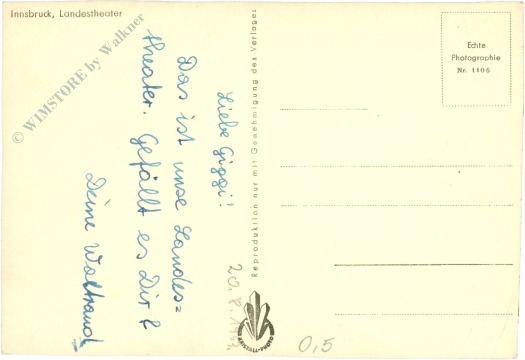 Innsbruck, Landestheater
Liebe Giggi!
Das ist unse Landes=
theater. Gefällt es Dir?
Deine Waltraud
20. 8.
Reproduktion nur mit Genehmigung des Verlages
KRISTALL-PHOTO
Echte
Photographie
Nr. 1106
0,5
© WIMSTORE by Walkner